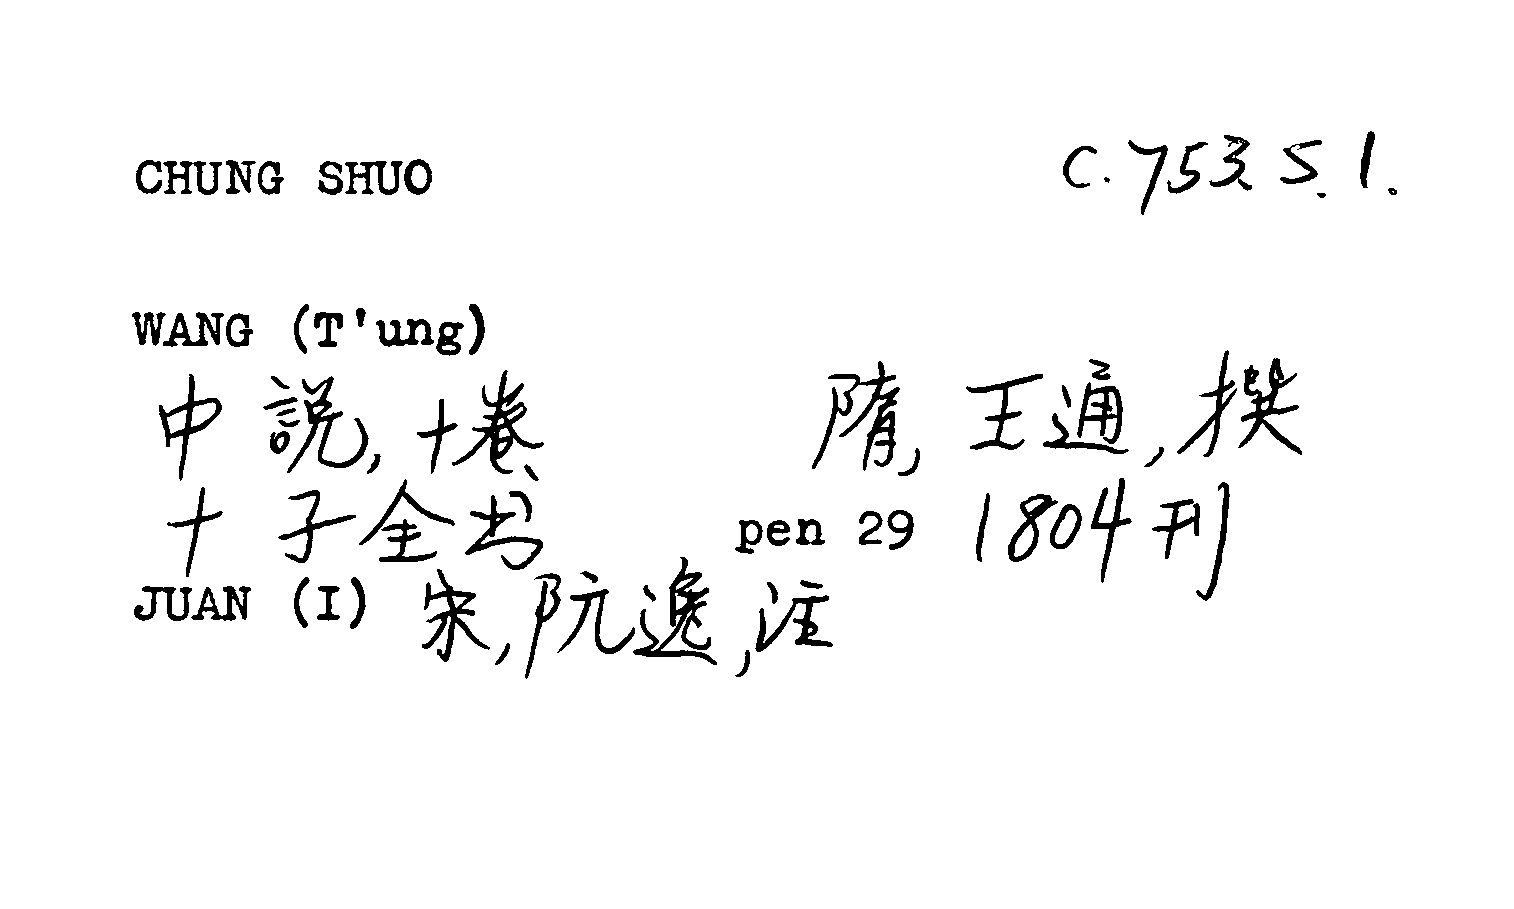 CHUNG SHUO C.753.S.1.
WANG (T'ung)
中説,十卷 隋,王通,撰
十子全书 pen 29 1804刊
JUAN (I) 宋,阮逸,注